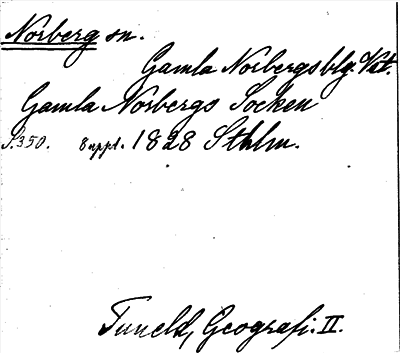 Norberg sn.
Gamla Norbergs blg. Vstm.
Gamla Norbergs Socken
S.350. 8 uppl. 1828 Sthlm.
Tuneld, Geografi. II.